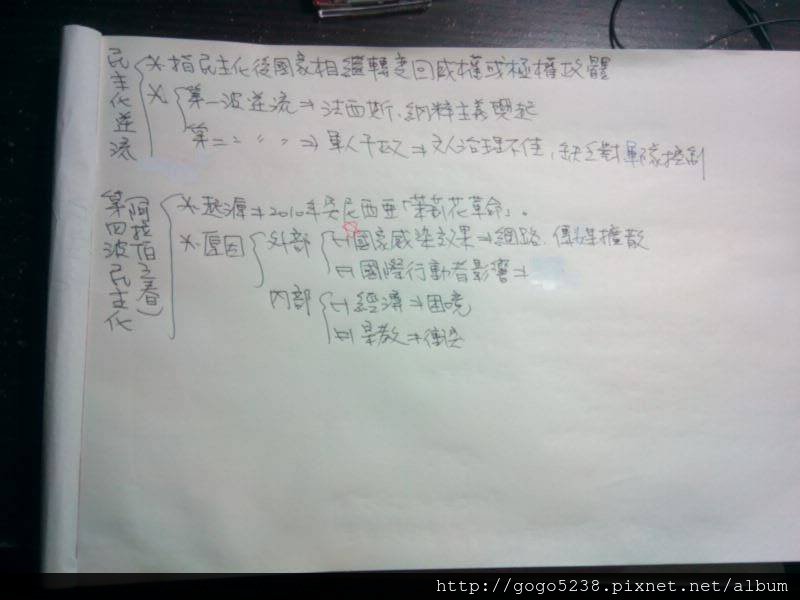 民主化逆流
* 指民主化後國家相繼轉變回威權或極權政體
* 第一波逆流⇒法西斯、納粹主義興起
第二〃〃⇒軍人干政⇒文人治理不佳,缺乏對軍隊控制
第四波民主化
(阿拉伯之春)
* 起源⇒2010年突尼西亞「茉莉花革命」。
* 原因
外部
㈠國家感染效果⇒網路、傳媒擴散
㈡國際行動者影響⇒
內部
㈠經濟⇒困境
㈡宗教⇒衝突
http://gogo5238.pixnet.net/album